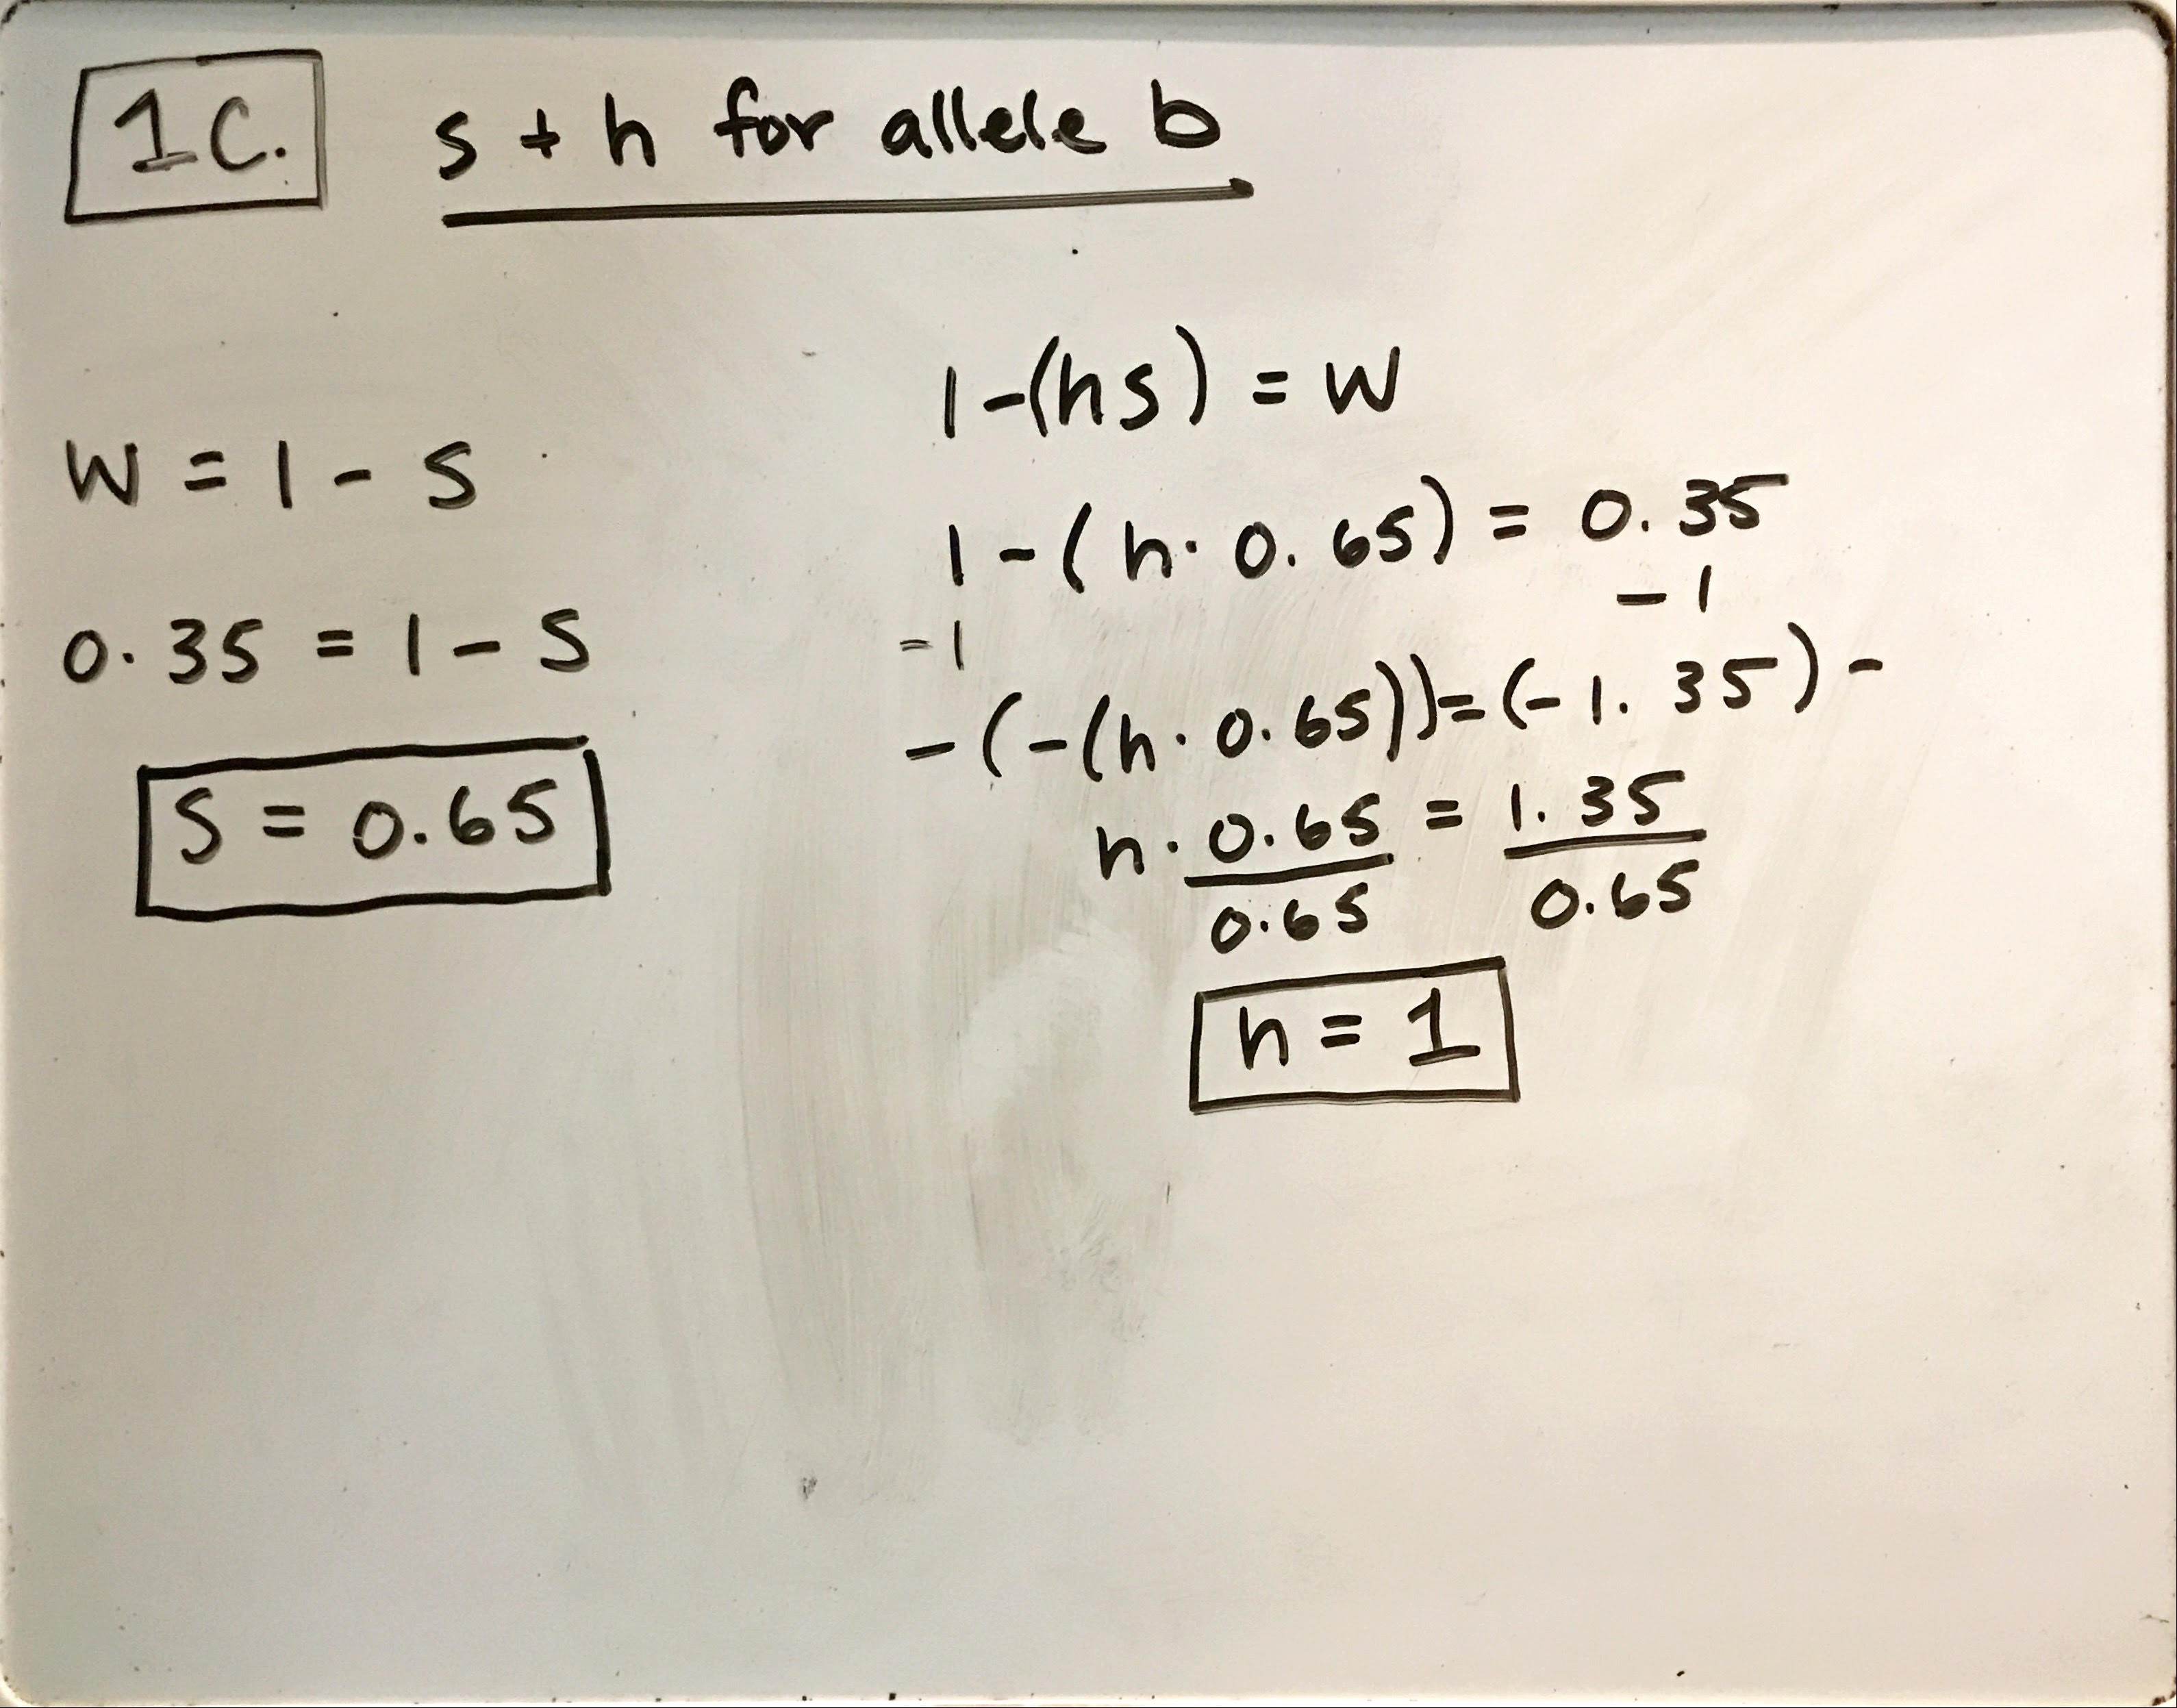 1C. s + h for allele b
W = 1 - S
0.35 = 1 - S
S = 0.65
1-(hs) = W
1-(h·0.65) = 0.35
-1 -1
-(-(h·0.65))=(-1.35)-
h·0.65 = 1.35
0.65 0.65
h = 1